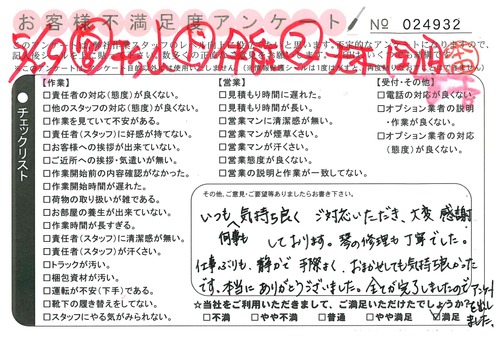 お客様不満足度アンケート
№ 024932
チェックリスト
【作業】
□責任者の対応(態度)が良くない。
□他のスタッフの対応(態度)が良くない。
□作業を見ていて不安がある。
□責任者(スタッフ)に好感が持てない。
□お客様への挨拶が出来ていない。
□ご近所への挨拶・気遣いが無い。
□作業開始前の内容確認がなかった。
□作業開始時間が遅れた。
□荷物の取り扱いが雑である。
□お部屋の養生が出来ていない。
□作業時間が長すぎる。
□責任者(スタッフ)に清潔感が無い。
□責任者(スタッフ)が汗くさい。
□トラックが汚い。
□梱包資材が汚い。
□運転が不安(下手)である。
□靴下の履き替えをしてない。
□スタッフにやる気がみられない。
【営業】
□見積もり時間に遅れた。
□見積もり時間が長い。
□営業マンに清潔感が無い。
□営業マンが煙草くさい。
□営業マンが汗くさい。
□営業態度が良くない。
□営業の説明と作業が一致してない。
【受付・その他】
□電話の対応が良くない。
□オプション業者の説明
・作業が良くない。
□オプション業者の対応
(態度)が良くない。
その他、ご意見・ご要望等ありましたらお書き下さい。
いつも気持ち良く ご対応いただき、大変 感謝
何事も
しております。琴の修理も丁寧でした。
仕事ぶりも、静かで 手際よく、おまかせしても気持ち良かった
です。本当にありがとうございました。全てが完了しましたのでアンケート
を出し
ました。
☆当社をご利用いただきまして、ご満足いただけたでしょうか?
□不満 □やや不満 □普通 □やや満足 ☑満足